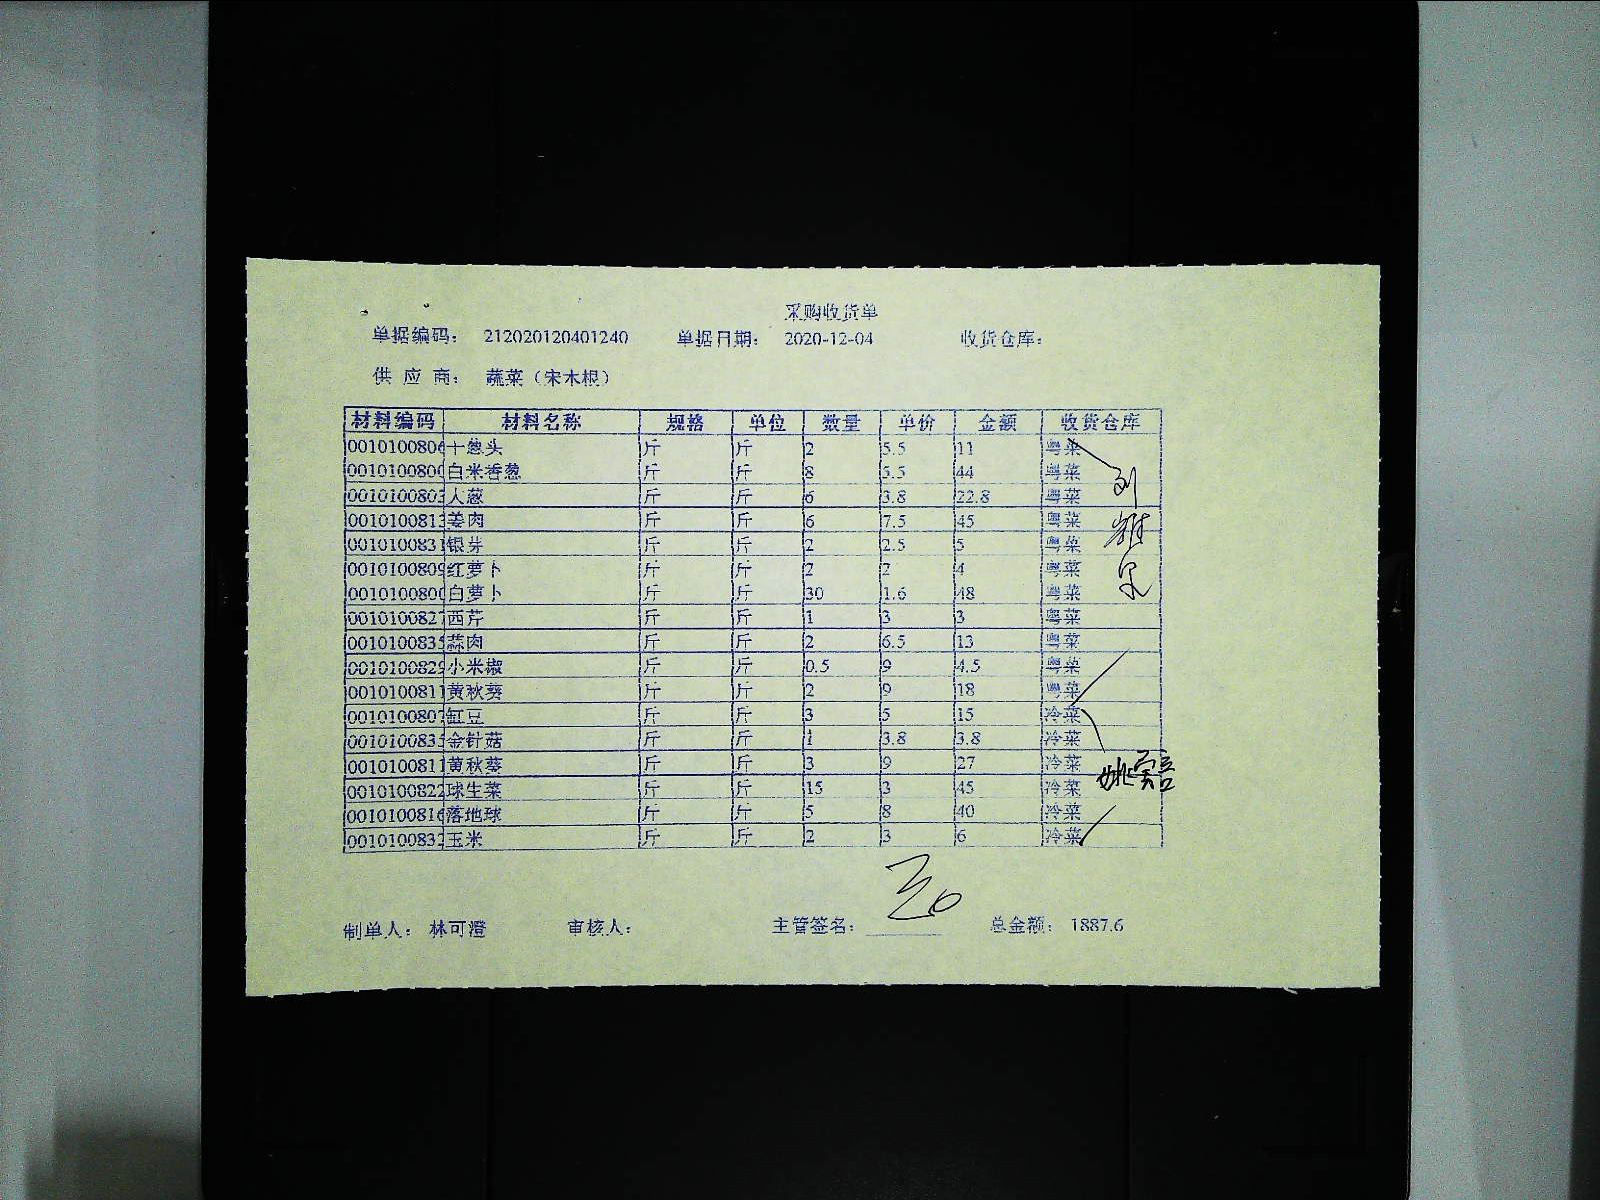 采购收货单
单据编码： 212020120401240 单据日期： 2020-12-04 收货仓库：
供 应 商： 蔬菜（宋木根）
材料编码 材料名称 规格 单位 数量 单价 金额 收货仓库
0010100806 干葱头 斤 斤 2 5.5 11 粤菜
001010080 白米香葱 斤 斤 8 5.5 44 粤菜
0010100803 大葱 斤 斤 6 3.8 22.8 粤菜
0010100813 姜肉 斤 斤 6 7.5 45 粤菜
0010100831 银芽 斤 斤 2 2.5 5 粤菜
0010100809 红萝卜 斤 斤 2 2 4 粤菜
001010080 白萝卜 斤 斤 30 1.6 48 粤菜
0010100827 西芹 斤 斤 1 3 3 粤菜
0010100835 蒜肉 斤 斤 2 6.5 13 粤菜
0010100829 小米椒 斤 斤 0.5 9 4.5 粤菜
0010100811 黄秋葵 斤 斤 2 9 18 粤菜
0010100807 缸豆 斤 斤 3 5 15 冷菜
001010083 金针菇 斤 斤 1 3.8 3.8 冷菜
0010100811 黄秋葵 斤 斤 3 9 27 冷菜
0010100822 球生菜 斤 斤 15 3 45 冷菜
0010100816 落地球 斤 斤 5 8 40 冷菜
0010100832 玉米 斤 斤 2 3 6 冷菜
制单人： 林可澄 审核人： 主管签名： 总金额： 1887.6